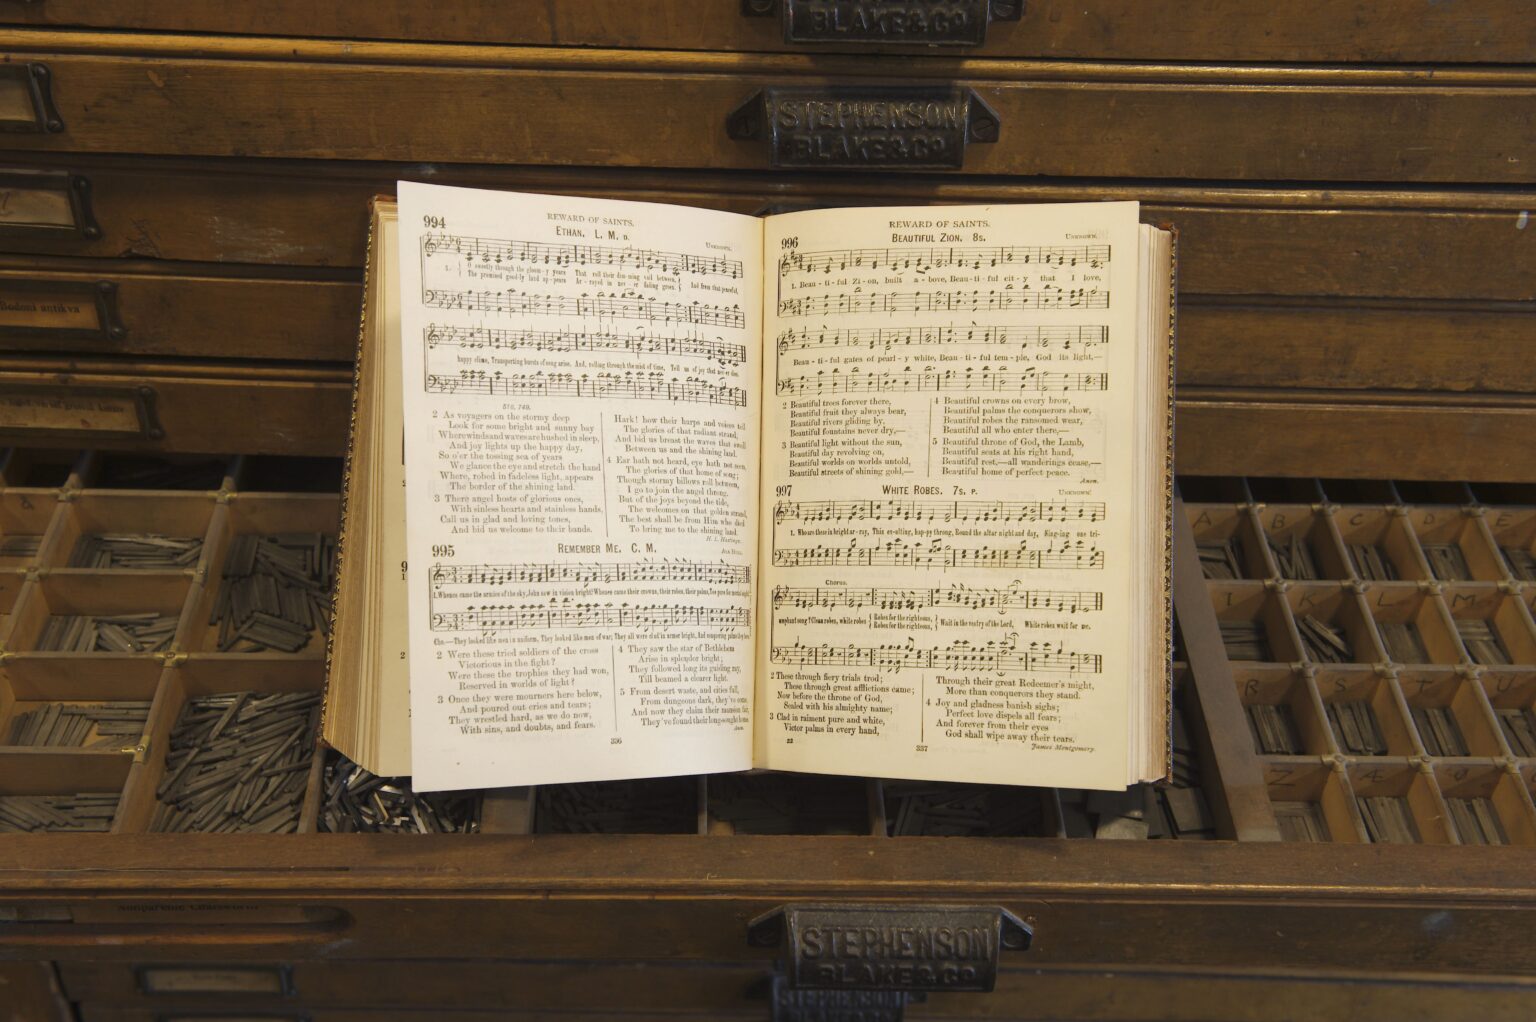 BLAKE & CO
STEPHENSON
BLAKE & CO.
Bodoni antikva
994
REWARD OF SAINTS.
ETHAN. L. M. D.
UNKNOWN.
1. O sweetly through the gloom-y years That roll their dim-ming veil between, And from that peaceful,
The promised good-ly land ap-pears Ar-rayed in nev-er fading green.
happy clime, Transporting bursts of song arise, And, rolling through the mist of time, Tell us of joy that nev-er dies.
516, 749.
2 As voyagers on the stormy deep
Look for some bright and sunny bay
Where winds and waves are hushed in sleep,
And joy lights up the happy day,
So o'er the tossing sea of years
We glance the eye and stretch the hand
Where, robed in fadeless light, appears
The border of the shining land.
3 There angel hosts of glorious ones,
With sinless hearts and stainless hands,
Call us in glad and loving tones,
And bid us welcome to their bands.
Hark! how their harps and voices tell
The glories of that radiant strand,
And bid us breast the waves that swell
Between us and the shining land.
4 Ear hath not heard, eye hath not seen,
The glories of that home of song;
Though stormy billows roll between,
I go to join the angel throng.
But of the joys beyond the tide,
The welcomes on that golden strand,
The best shall be from Him who died
To bring me to the shining land.
H. L. Hastings.
995
REMEMBER ME. C. M.
ASA HULL.
1. Whence came the armies of the sky, John saw in vision bright? Whence came their crowns, their robes, their palms, Too pure for mortal sight?
Cho.—They looked like men in uniform, They looked like men of war; They all were clad in armor bright, And conquering palms they bore.
2 Were these tried soldiers of the cross
Victorious in the fight?
Were these the trophies they had won,
Reserved in worlds of light?
3 Once they were mourners here below,
And poured out cries and tears;
They wrestled hard, as we do now,
With sins, and doubts, and fears.
4 They saw the star of Bethlehem
Arise in splendor bright;
They followed long its guiding ray,
Till beamed a clearer light.
5 From desert waste, and cities full,
From dungeons dark, they've come,
And now they claim their mansion fair,
They've found their long-sought home.
336
996
REWARD OF SAINTS.
BEAUTIFUL ZION. 8s.
UNKNOWN.
1. Beau-ti-ful Zi-on, built a-bove, Beau-ti-ful cit-y that I love,
Beau-ti-ful gates of pearl-y white, Beau-ti-ful tem-ple, God its light,—
2 Beautiful trees forever there,
Beautiful fruit they always bear,
Beautiful rivers gliding by,
Beautiful fountains never dry,—
3 Beautiful light without the sun,
Beautiful day revolving on,
Beautiful worlds on worlds untold,
Beautiful streets of shining gold,—
4 Beautiful crowns on every brow,
Beautiful palms the conquerors show,
Beautiful robes the ransomed wear,
Beautiful all who enter there,—
5 Beautiful throne of God, the Lamb,
Beautiful seats at his right hand,
Beautiful rest,—all wanderings cease,—
Beautiful home of perfect peace.
Anon.
997
WHITE ROBES. 7s. P.
UNKNOWN
1. Who are these in bright ar-ray, This ex-ulting, hap-py throng, Round the altar night and day, Sing-ing one tri-
Chorus.
umphant song? Clean robes, white robes Robes for the righteous, Wait in the restry of the Lord, White robes wait for me.
Robes for the righteous,
2 These through fiery trials trod;
These through great afflictions came;
Now before the throne of God,
Sealed with his almighty name;
3 Clad in raiment pure and white,
Victor palms in every hand,
Through their great Redeemer's might,
More than conquerors they stand.
4 Joy and gladness banish sighs;
Perfect love dispels all fears;
And forever from their eyes
God shall wipe away their tears.
James Montgomery.
22
337
A B C
I K L M
R S T
Z
STEPHENSON
BLAKE & CO
STEPHENSON